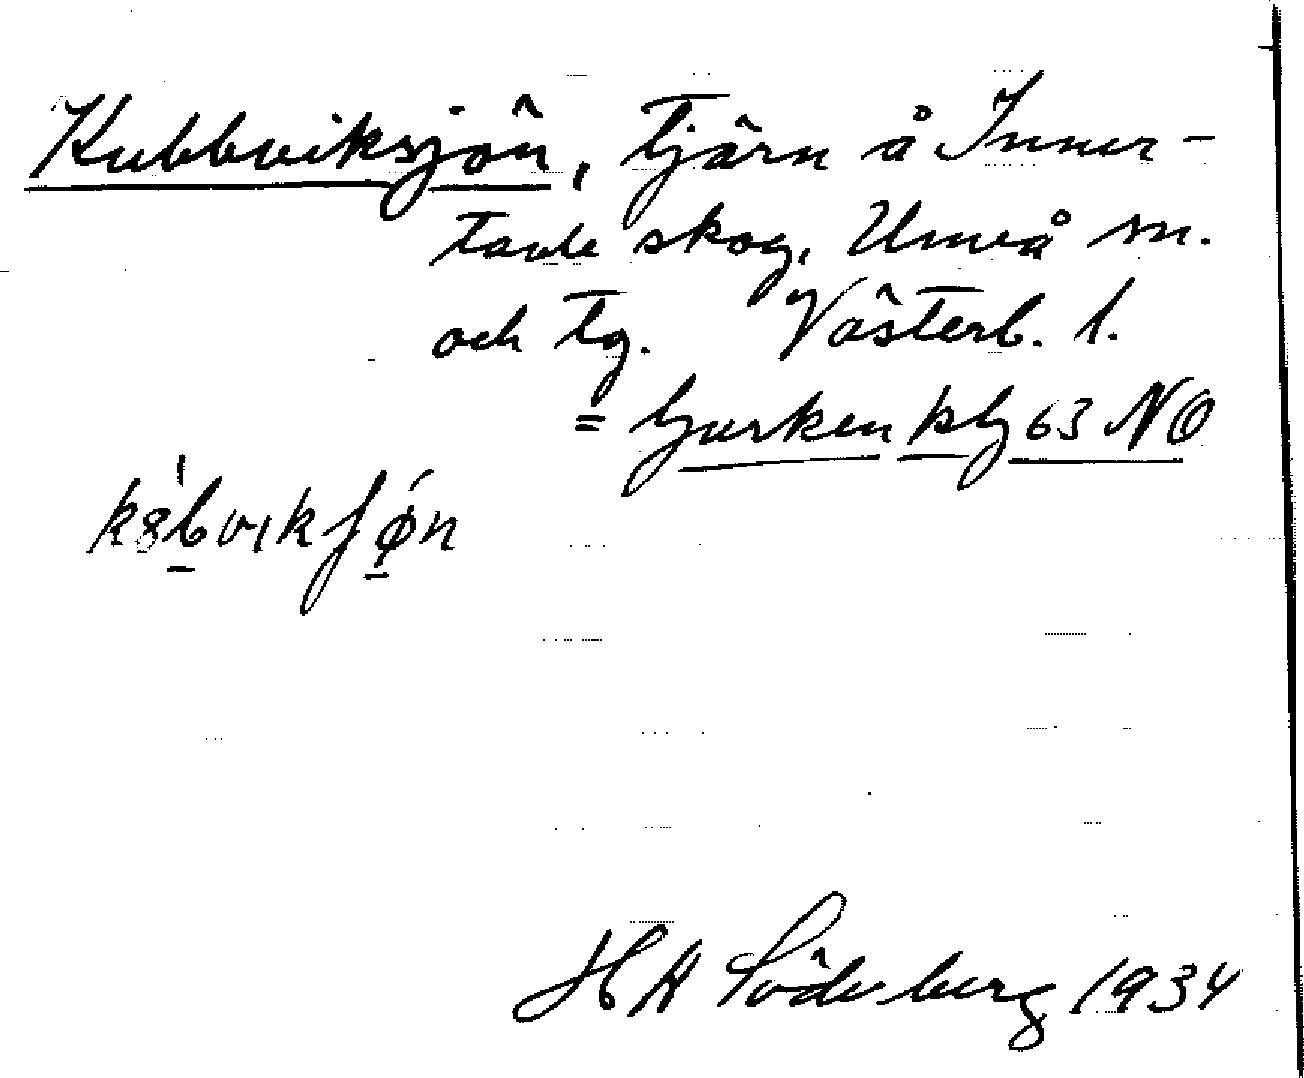 Kubbviksjön, tjärn å Inner-
tavle skog, Umeå sn.
och tg. Västerb. l.
= Gjurken kbl 63 NO
k8bvikʃøn
H A Söderberg 1934